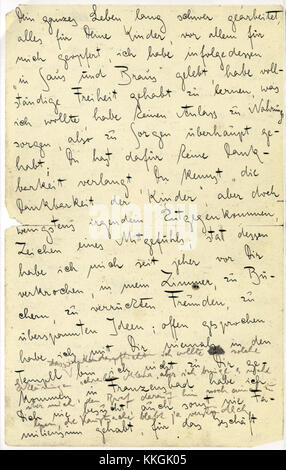 Dein ganzes Leben lang schwer gearbeitet
alles für Deine Kinder, vor allem für
mich geopfert, ich habe infolgedessen
in Saus und Braus gelebt habe voll-
ständige Freiheit gehabt zu lernen, was
ich wollte habe keinen Anlass zu Nahrung
sorgen, also zu Sorgen überhaupt ge-
habt; Du hast dafür keine Dank-
barkeit verlangt Du kennst "die
Dankbarkeit der Kinder", aber doch
wenigstens irgendein Entgegenkommen,
Zeichen eines Mitgefühls statt dessen
habe ich mich seit jeher vor Dir
verkrochen, in mein Zimmer, zu Bü-
chern, zu verrückten Freunden, zu
überspannten Ideen; offen gesprochen
habe ich mit Dir niemals in den
Tempel bin ich nicht zu Dir
in Franzensbad habe ich
Dich nie besucht auch sonst nie Fa-
miliensinn gehabt für das Geschäft
alamy
KKGK05